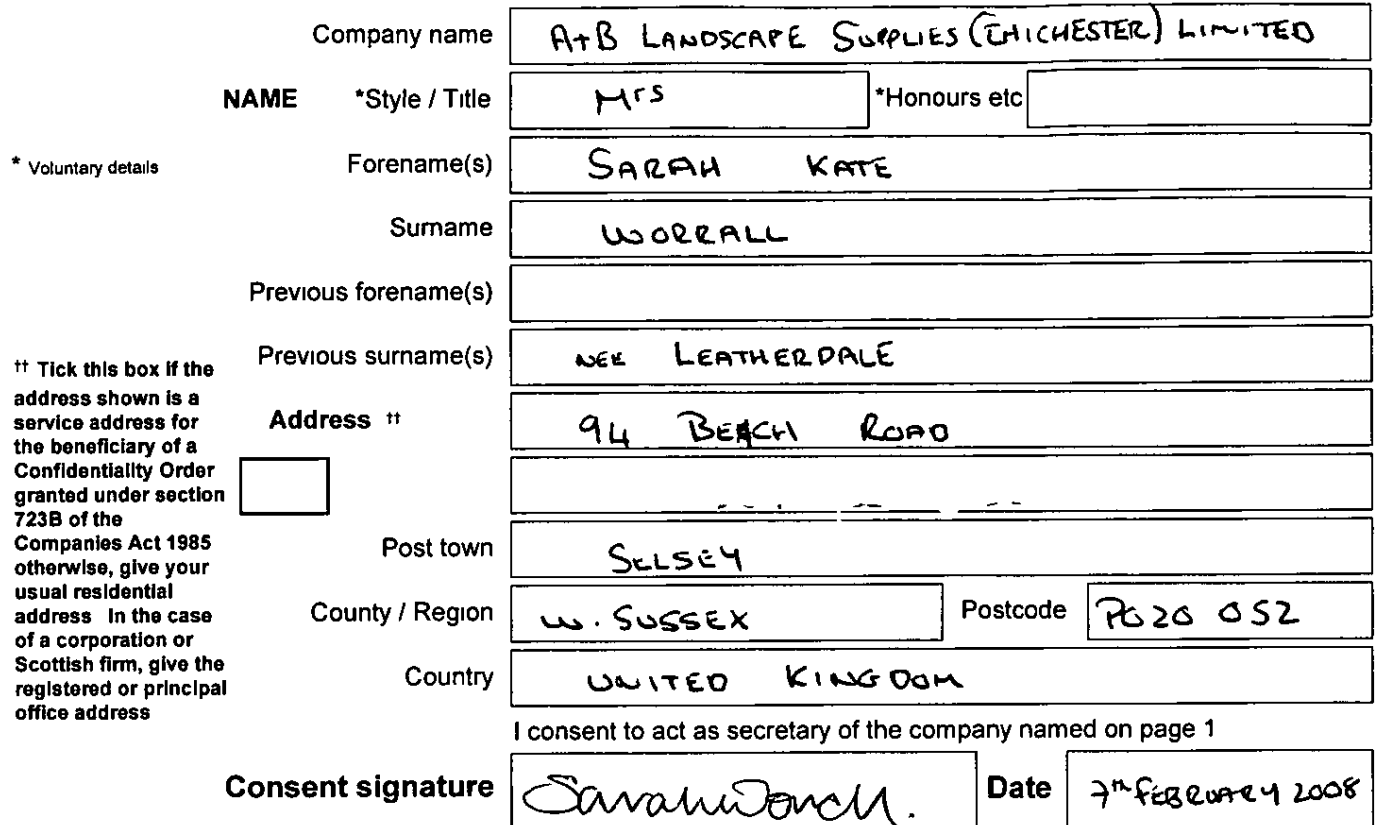 Company name A+B LANDSCAPE SUPPLIES (CHICHESTER) LIMITED
NAME *Style / Title Mrs *Honours etc
* Voluntary details Forename(s) SARAH KATE
Surname WORRALL
Previous forename(s)
Previous surname(s) NEE LEATHERDALE
†† Tick this box if the
address shown is a
service address for
the beneficiary of a
Confidentiality Order
granted under section
723B of the
Companies Act 1985
otherwise, give your
usual residential
address In the case
of a corporation or
Scottish firm, give the
registered or principal
office address
Address †† 94 BEACH ROAD
Post town SELSEY
County / Region W. SUSSEX Postcode PO20 0SZ
Country UNITED KINGDOM
I consent to act as secretary of the company named on page 1
Consent signature Sarah Worrall. Date 7TH FEBRUARY 2008